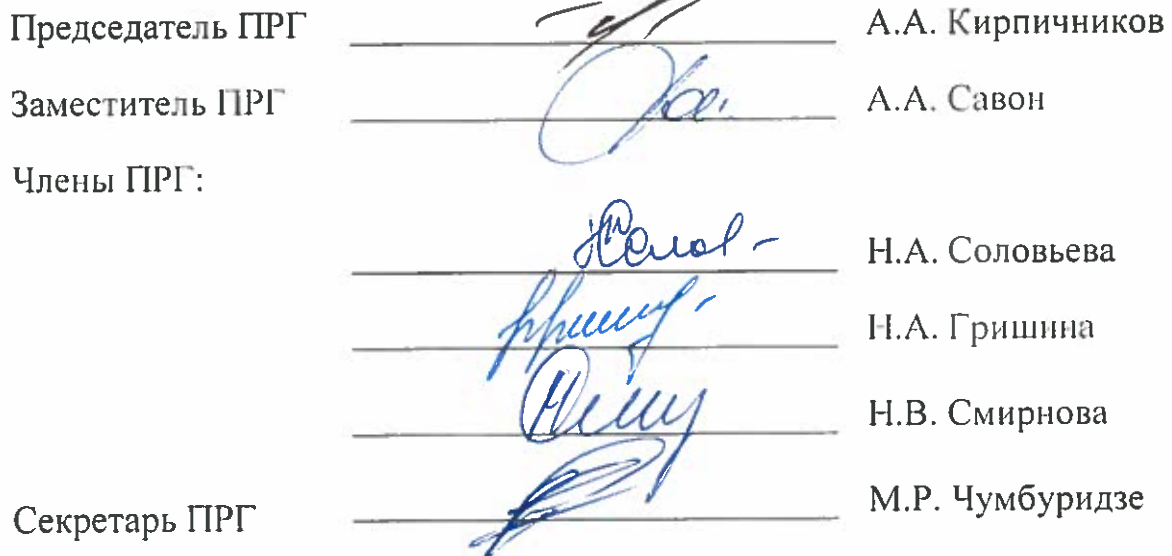 Председатель ПРГ А.А. Кирпичников
Заместитель ПРГ А.А. Савон
Члены ПРГ:
Н.А. Соловьева
Н.А. Гришина
Н.В. Смирнова
Секретарь ПРГ М.Р. Чумбуридзе